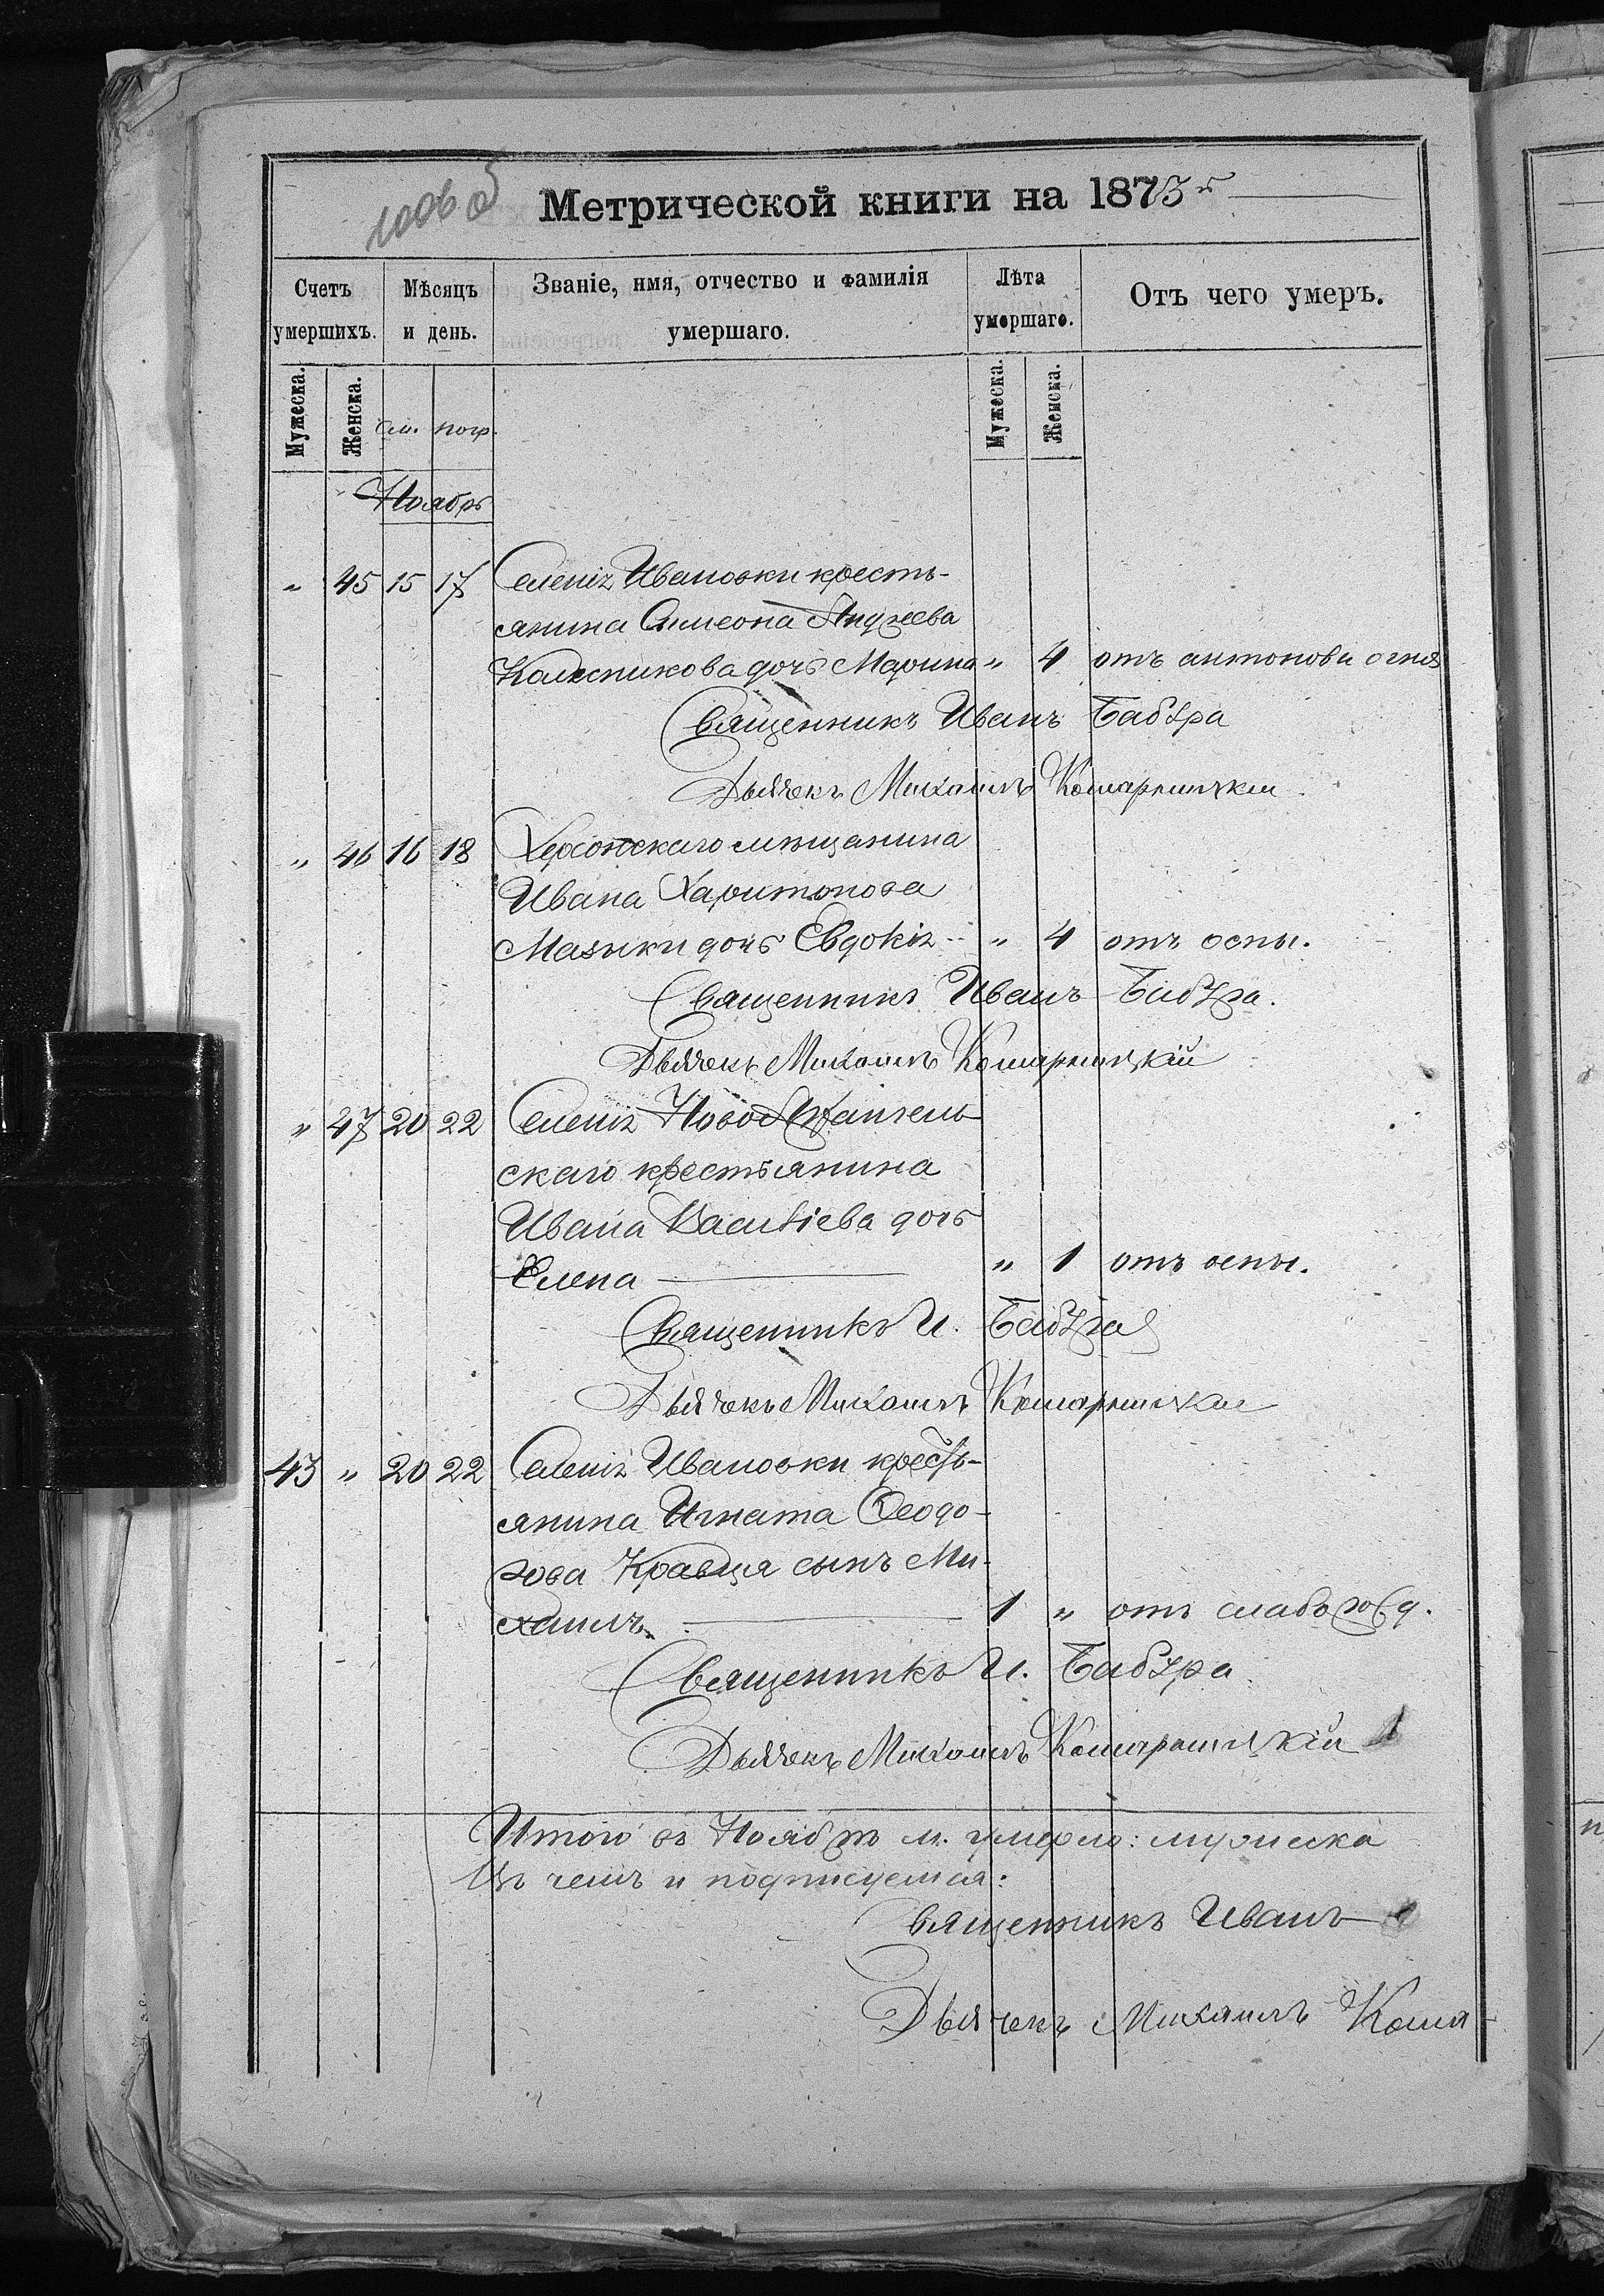 1006 об
Метрической книги на 1873 г
Счетъ умершихъ.
Мѣсяцъ и день.
Званіе, имя, отчество и фамилія умершаго.
Лѣта умершаго.
Отъ чего умеръ.
Мужеска. Женска. см. погр. Мужеска. Женска.
Ноябрь
" 45 15 17 Селенія Ивановки кресть-
янина Симеона Андреева
Колесникова дочь Марина " 4 отъ антонова огня
Священникъ Иванъ Бабура
Дьячекъ Михаилъ Комарницкій
" 46 16 18 Херсонскаго мѣщанина
Ивана Харитонова
Мазыки дочь Евдокія " 4 отъ оспы.
Священникъ Иванъ Бабура.
Дьячекъ Михаилъ Комарницкій
" 47 20 22 Селенія Ново-Архангель-
скаго крестьянина
Ивана Васильева дочь
Елена " 1 отъ оспы.
Священникъ И. Бабура
Дьячекъ Михаилъ Комарницкій
43 " 20 22 Селенія Ивановки кресть-
янина Игната Ѳеодо-
рова Кравця сынъ Ми-
хаилъ. 1 " отъ слабо
Священникъ И. Бабура
Дьячекъ Михаилъ Комарницкій
Итого въ Ноябрѣ м. умерло: мужеска
Въ чемъ и подписуемся:
Священникъ Иванъ
Дьячекъ Михаилъ Кома